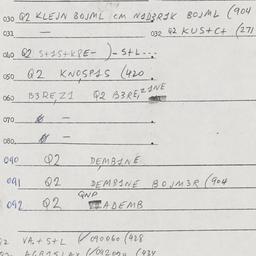 030 Q2 KLEJN BOJML CM N1D3R1K BOJML (904
031 — 032 Q2 KUS+C+ (271
040 Q2 S+1S+KPE- )-S+L-...
050 Q2 KNOSP1S (420
060 B3RE,Z1 Q2 B3RE,Z1NE
070 —
080 —
090 Q2 DEMB1NE
091 Q2 DEMB1NE BOJM3R (904
092 Q2 QNP ADEMB
VA,+S+L (/090060 (428